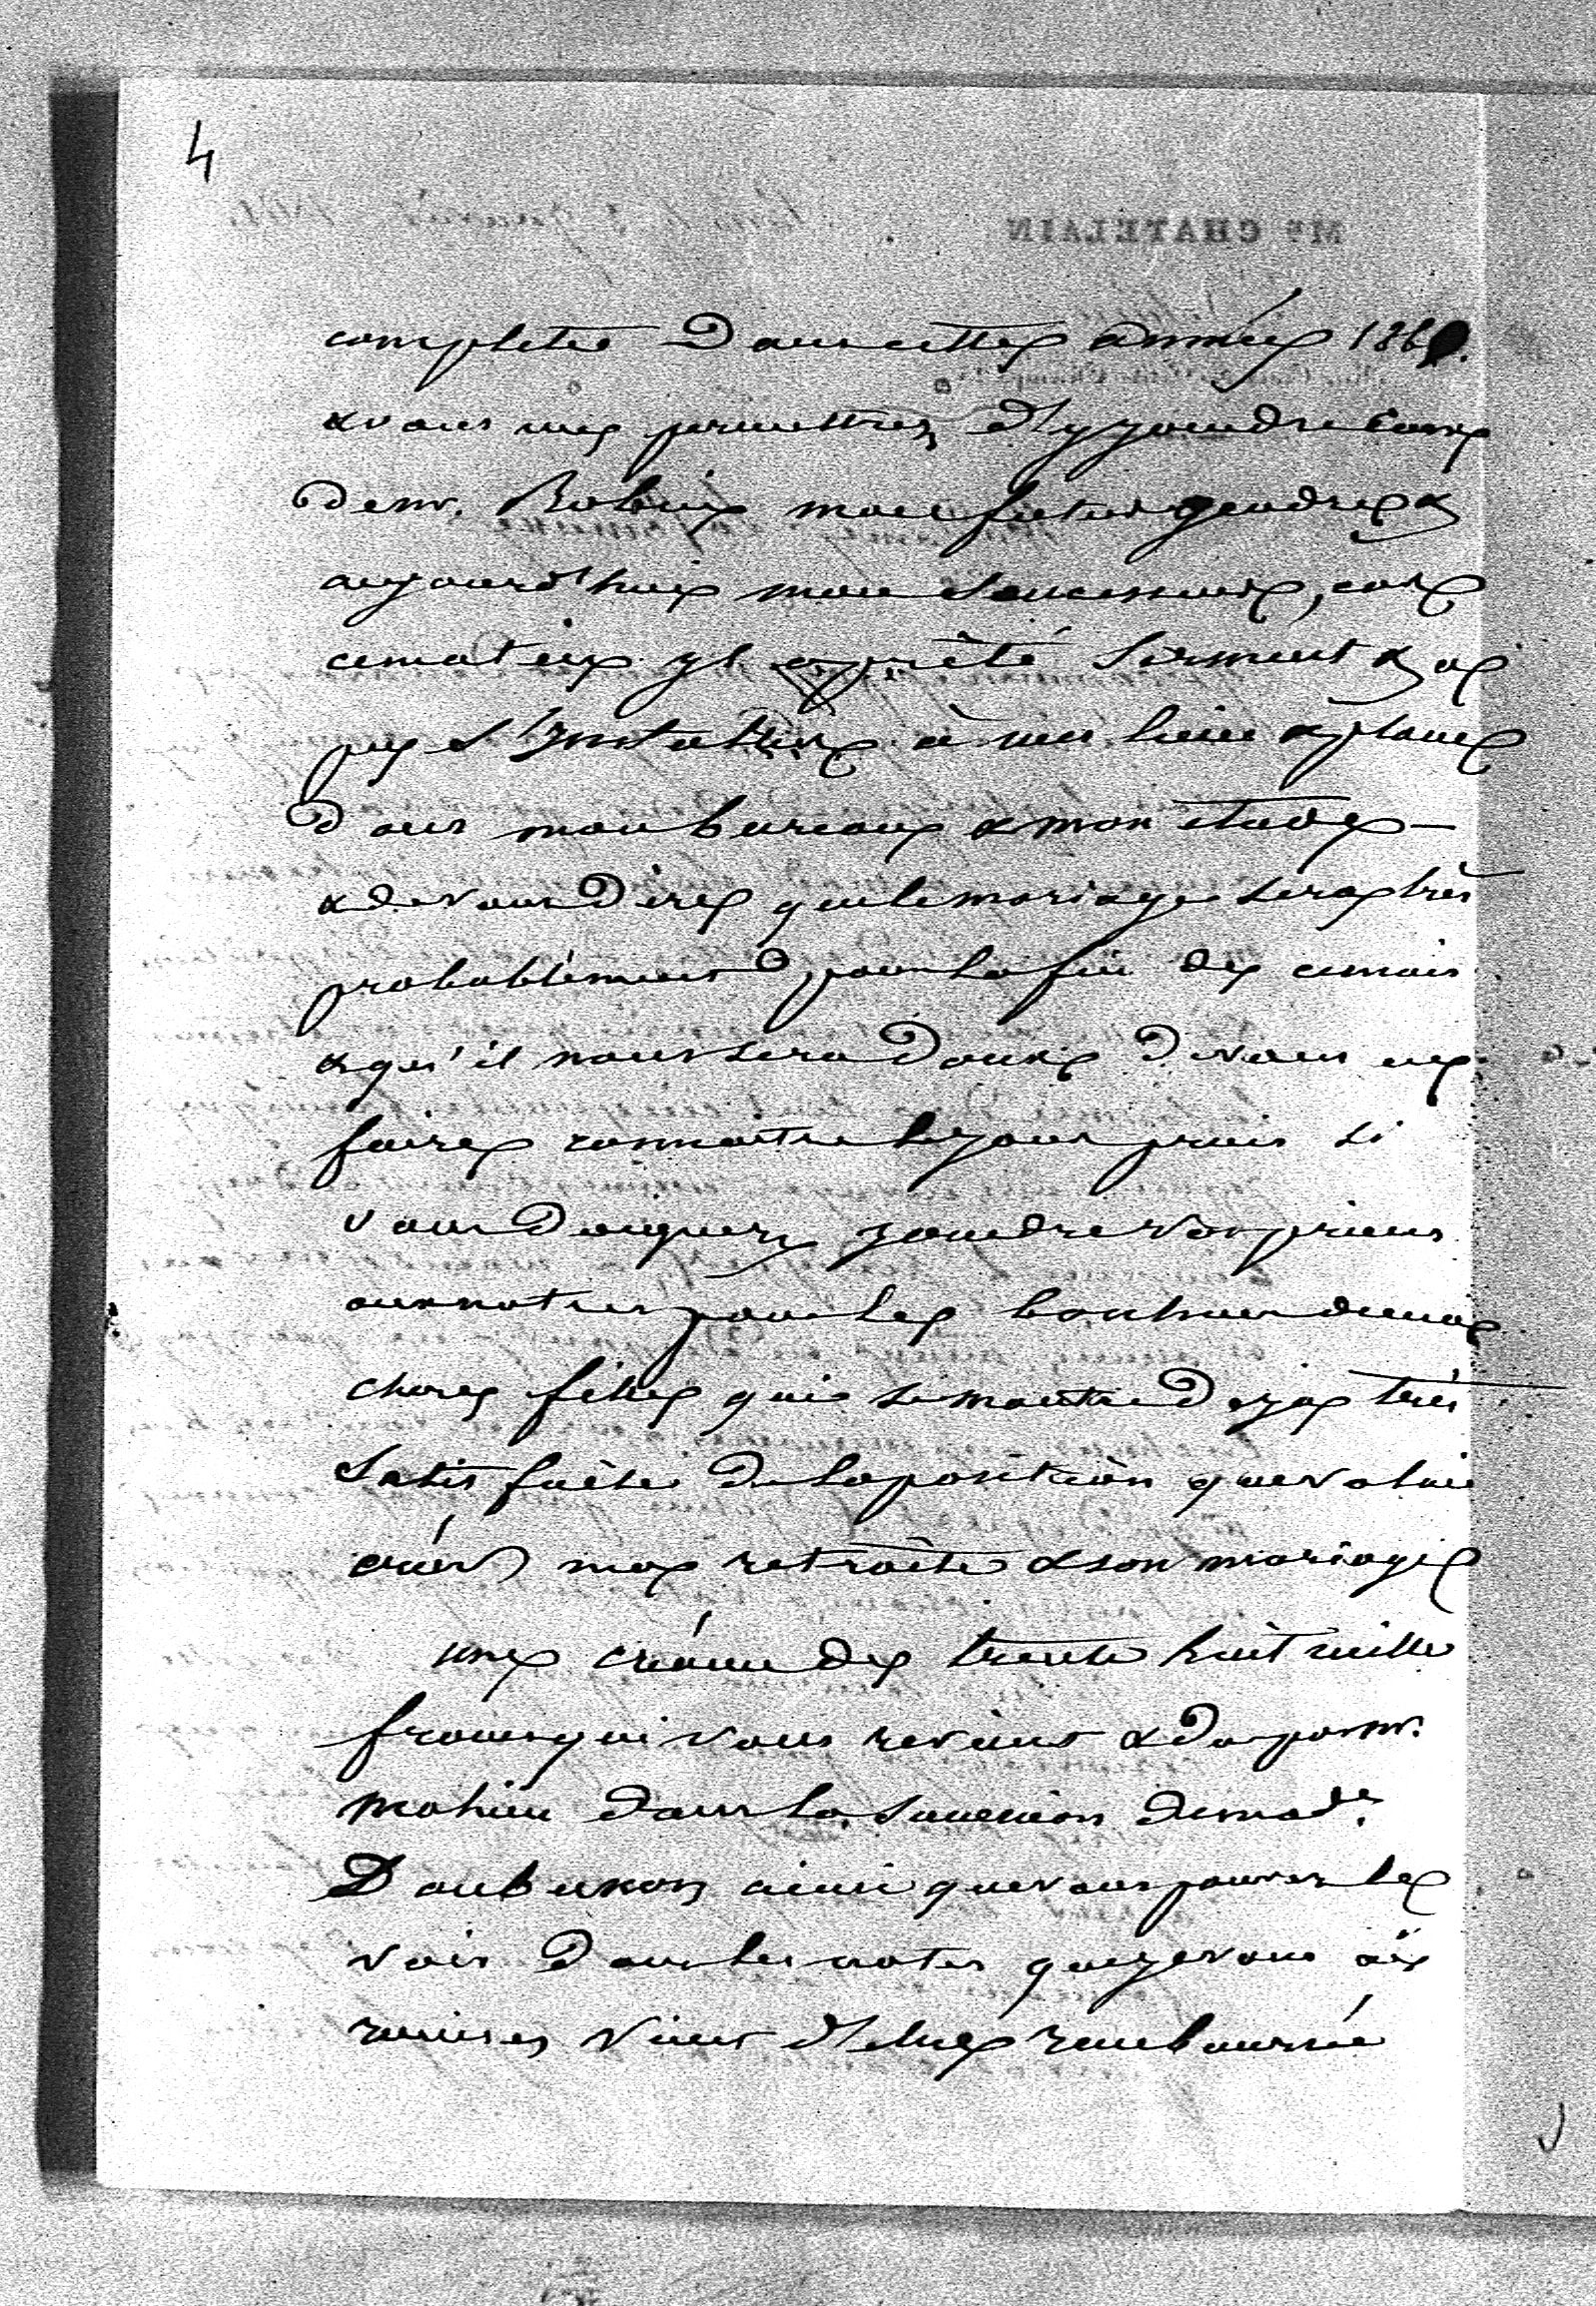 4
complette dans cette année 1861.
& vous me permettrez d'y joindre ceux
de mr. Robin mon futur gendre &
aujourd'hui mon successeur, car
ce matin il a prêté serment & a
pu s'installer à mon lieu & place
dans mon bureau & mon étude —
& de vous dire que le mariage sera très
probablement pour la fin de ce mois
& qu'il nous sera doux de vous en
faire connaitre le jour précis si
vous daignez joindre vos prieres
aux notres pour le bonheur de ma
chere fille qui se montre deja très
satisfaite de la position que va lui
créer ma retraite & son mariage
une créance de trente huit mille
francs qui vous revient & due par mr.
dans la succession de made.
Daubuson ainsi que vous pouvez le
voir dans les notes que je vous ai
remises vient d'etre remboursée
Me CHATELAIN